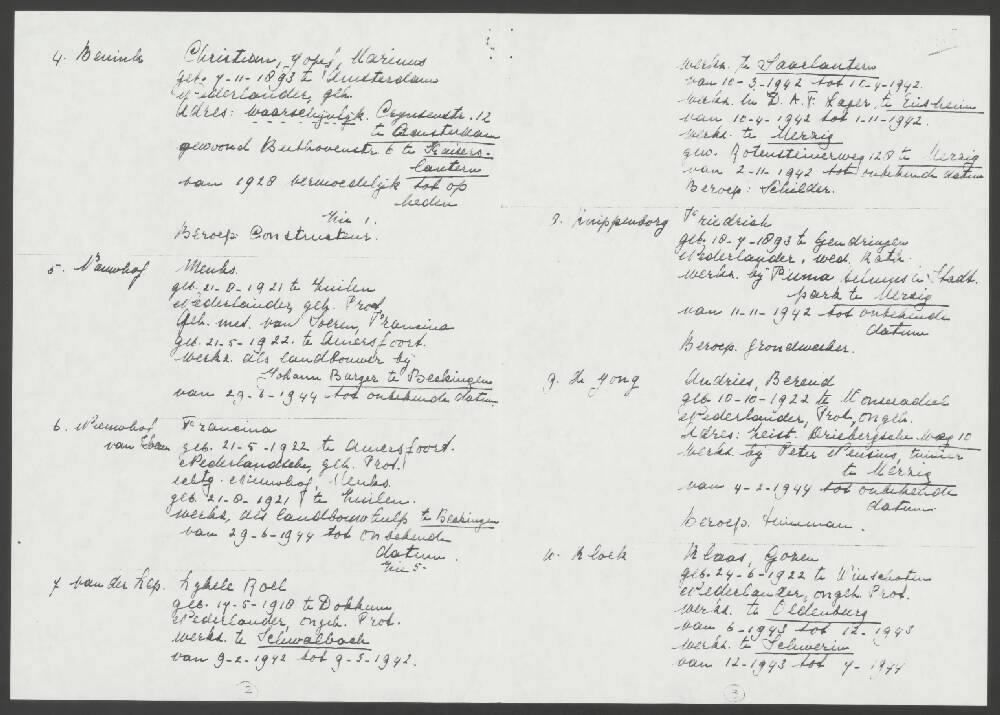 4. Benink Christiaan, Josef, Marinus
geb. 7-11-1893 te Amsterdam
Nederlander, geh.
Adres: waarschijnlijk. 12
te Amsterdam
gewoond Beethovenstr. 6 te Kaisers-
lautern
van 1928 vermoedelijk tot op
heden
Zie 1.
Beroep Constructeur.
5. Nieuwhof Menko.
geb. 21-8-1921 te Zuilen
Nederlander, geh. Prot.
Geh. met. van Soeren, Francina
geb. 21-5-1922 te Amersfoort.
werkz. als landbouwer bij
Johann Burger te Beckingen
van 29-6-1944 tot onbekende datum
6. Nieuwhof Francina
van geb. 21-5-1922 te Amersfoort.
Nederlandsche, geh. Prot.
echtg. Nieuwhof, Menko.
geb. 21-8-1921 te Zuilen.
werkz. als landbouwhulp te Beckingen
van 29-6-1944 tot onbekende
datum.
Zie 5.
7. van der Lep. Lykele Roel
geb. 17-5-1918 te Dokkum
Nederlander, ongeh. Prot.
werkz. te Schwalbach
van 9-2-1942 tot 9-3-1942.
2
werkz. te Saarlautern
van 10-3-1942 tot 10-4-1942.
werkz. in D.A.F. Lager, te Ensheim
van 10-4-1942 tot 1-11-1942.
werkz. te Merzig
gew. Rotensteinerweg 128 te Merzig
van 2-11-1942 tot onbekende datum
Beroep: Schilder.
8. Knippenborg Friedrich
geb. 18-7-1893 te Gendringen
Nederlander, wed. Kath.
werkz. bij Firma in Stadt.
park te Merzig
van 11-11-1942 tot onbekende
datum
Beroep. grondwerker.
9. de Jong Andries, Berend
geb. 10-10-1922 te Wonseradeel
Nederlander, Prot, ongeh.
Adres: Zeist. Driebergsche weg 10
werkz. bij Peter
te Merzig
van 4-2-1944 tot onbekende
datum
beroep. timmerman.
10. Kloek Klaas, Gozen
geb. 24-6-1922 te Winschoten
Nederlander, ongeh. Prot.
werkz. te Oldenburg
van 6-1943 tot 12-1943
werkz. te Schwerin
van 12-1943 tot 4-1944
3